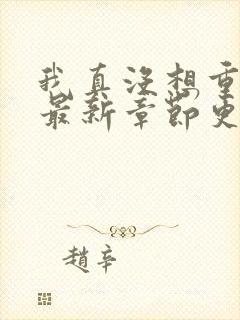 我真没想重
最新章节更
趙辛